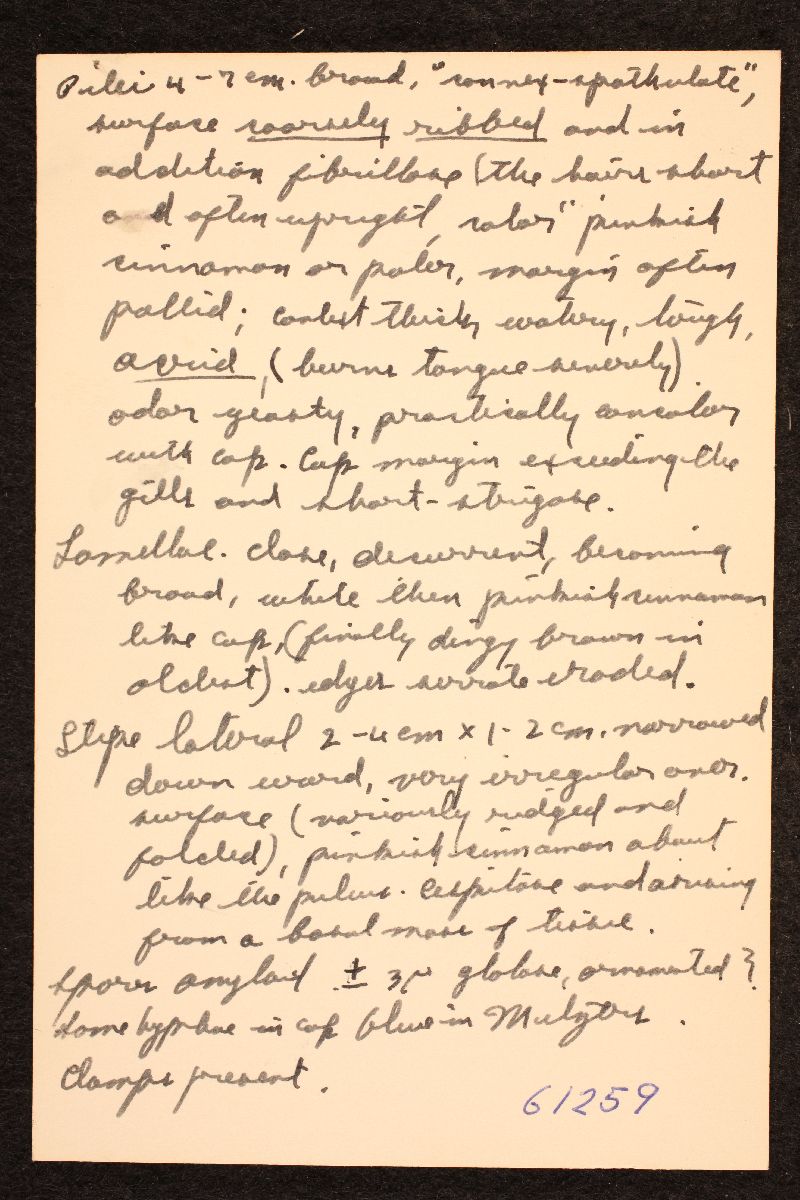 Pilei 4-7 cm. broad, "connex-spathulate",
surface coarsely ribbed and in
addition fibrillose (the hairs short
and often upright, color" pinkish
cinnamon or paler, margin often
pallid; context thick, watery, tough,
acrid, (burns tongue severely)
odor yeasty, practically concolor
with cap. Cap margin exceeding the
gills and short-strigose.
Lamellae. close, decurrent, becoming
broad, white then pinkish cinnamon
like cap, (finally dingy brown in
oldest). edges serrate eroded.
Stipe lateral 2-4 cm x 1-2 cm. narrowed
down ward, very irregular over.
surface (variously ridged and
folded), pinkish cinnamon about
like the pileus. Cespitose and arising
from a basal mass of tissue.
Spores amyloid ± 3µ globose, ornamented?
Some hyphae in cap blue in Melzers.
Clamps present.
61259